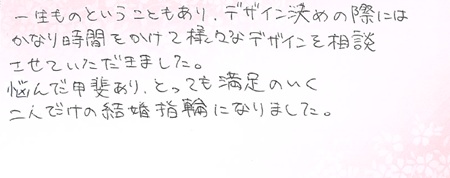 一生ものということもあり、デザイン決めの際には
かなり時間をかけて様々なデザインを相談
させていただきました。
悩んだ甲斐あり、とっても満足のいく
二人だけの結婚指輪になりました。